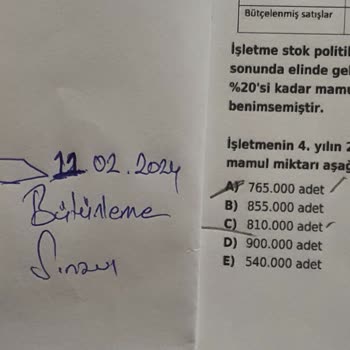 Bütçelenmiş satışlar
İşletme stok politi
sonunda elinde gel
%20'si kadar mamu
benimsemiştir.
İşletmenin 4. yılın 2
mamul miktarı aşağ
A) 765.000 adet
B) 855.000 adet
C) 810.000 adet
D) 900.000 adet
E) 540.000 adet
11 02.2024
Bütünleme
Sınavı